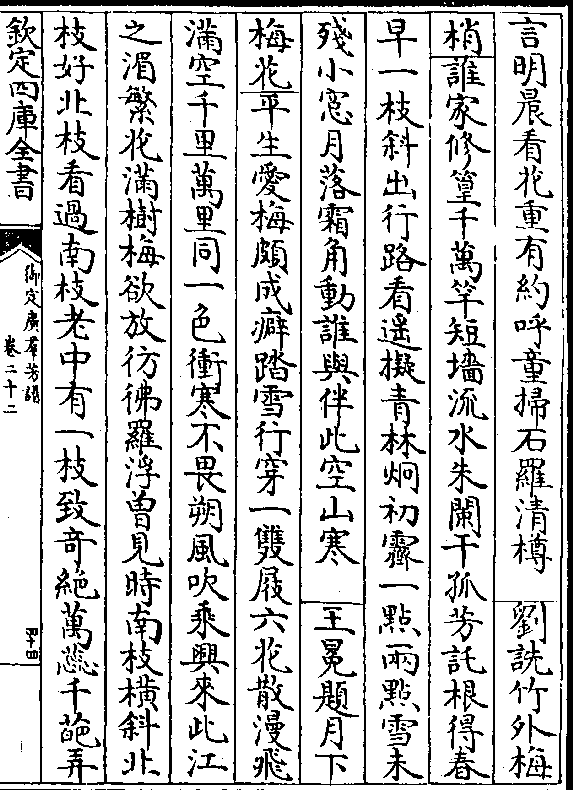 言明晨看花重有約呼童掃石羅清樽　劉詵竹外梅
梢誰家修篁千萬竿短墻流水朱闌干孤芳託根得春
早一枝斜出行路看遥擬青林炯初霽一點兩點雪未
殘小窓月落霜角動誰與伴此空山寒　王冕題月下
梅花平生愛梅頗成癖踏雪行穿一雙屐六花散漫飛
滿空千里萬里同一色衝寒不畏朔風吹乘興來此江
之湄繁花滿樹梅欲放彷彿羅浮曽見時南枝横斜北
枝好北枝看過南枝老中有一枝致奇絶萬蕊千葩弄
欽定四庫全書
御定廣羣芳譜
卷二十二
四十四